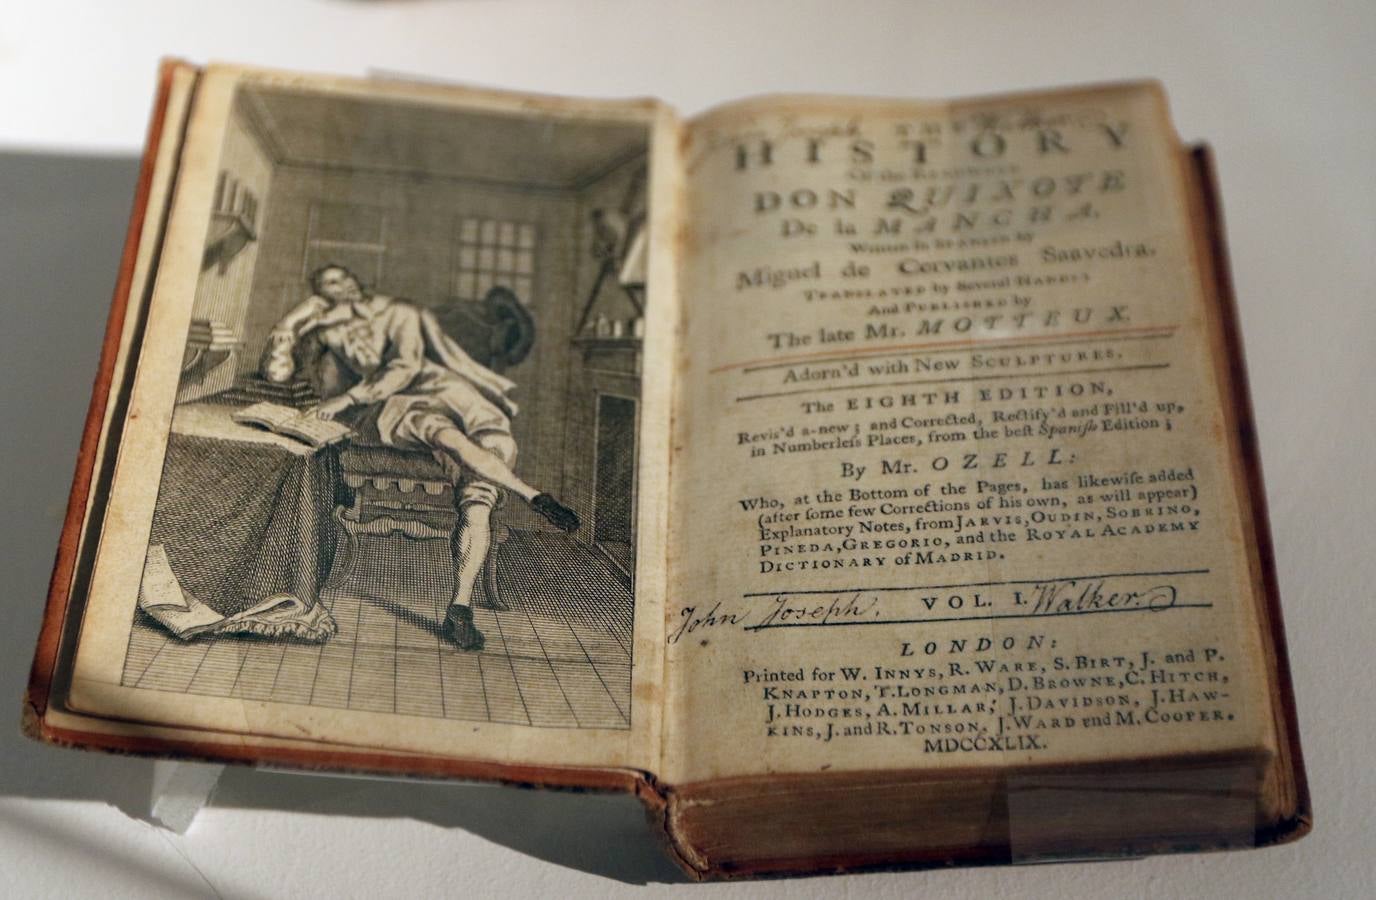 THE
HISTORY
Of the RENOWNED
DON QUIXOTE
De la MANCHA.
Written in SPANISH by
Miguel de Cervantes Saavedra.
TRANSLATED by Several HANDS:
And PUBLISHED by
The late Mr. MOTTEUX.
Adorn'd with New SCULPTURES.
The EIGHTH EDITION,
Revis'd a-new; and Corrected, Rectify'd and Fill'd up,
in Numberleſs Places, from the beſt Spaniſh Edition;
By Mr. OZELL:
Who, at the Bottom of the Pages, has likewiſe added
(after ſome few Corrections of his own, as will appear)
Explanatory Notes, from JARVIS, OUDIN, SOBRINO,
PINEDA, GREGORIO, and the ROYAL ACADEMY
DICTIONARY of MADRID.
John Joseph. VOL. I. Walker.
LONDON:
Printed for W. INNYS, R. WARE, S. BIRT, J. and P.
KNAPTON, T. LONGMAN, D. BROWNE, C. HITCH,
J. HODGES, A. MILLAR, J. DAVIDSON, J. HAW-
KINS, J. and R. TONSON, J. WARD and M. COOPER.
MDCCXLIX.